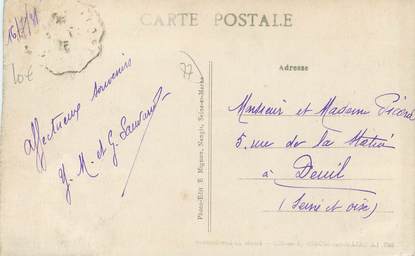 CARTE POSTALE
10€
77
Affectueux souvenirs
Y. M. et G.
Photo-Edit. E. Mignon, Nangis, Seine-et-Marne
Adresse
Monsieur et Madame
5, rue de la Station
à Deuil
(Seine et Oise)